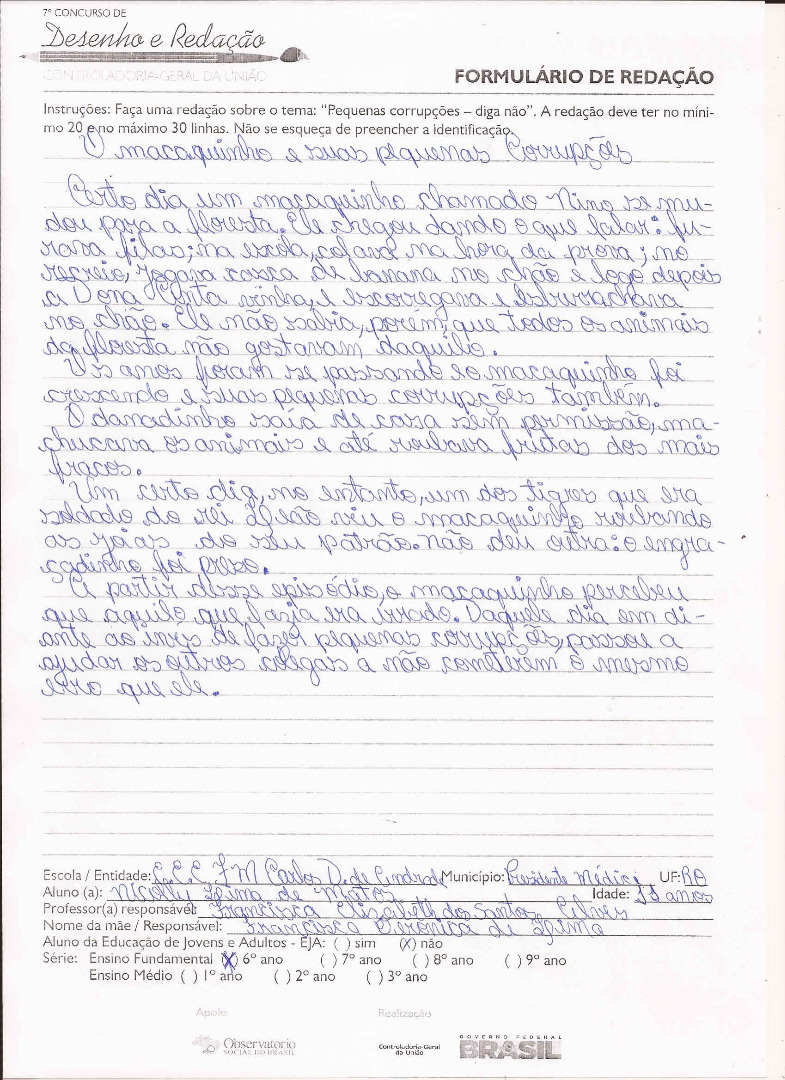 7º CONCURSO DE
Desenho e Redação
CONTROLADORIA-GERAL DA UNIÃO
FORMULÁRIO DE REDAÇÃO
Instruções: Faça uma redação sobre o tema: “Pequenas corrupções – diga não”. A redação deve ter no míni-
mo 20 e no máximo 30 linhas. Não se esqueça de preencher a identificação.
O macaquinho e suas pequenas Corrupções
Certo dia um macaquinho chamado Nino se mu-
dou para a floresta. Ele chegou dando o que falar: fu-
rava filas; na escola, colava na hora da prova; no
recreio, jogava casca de banana no chão e logo depois
a Dona Anta vinha, e escorregava e esburrachava
no chão. Ele não sabia, porém, que todos os animais
da floresta não gostavam daquilo.
Os anos foram se passando e o macaquinho foi
crescendo e suas pequenas corrupções também.
O danadinho saía de casa sem permissão, ma-
chucava os animais e até roubava frutas dos mais
fracos.
Um certo dia, no entanto, um dos tigres que era
soldado do rei Leão viu o macaquinho roubando
as joias do seu patrão. não deu outra: o engra-
çadinho foi preso.
A partir desse episódio, o macaquinho percebeu
que aquilo que fazia era errado. Daquele dia em di-
ante ao invés de fazer pequenas corrupções, passou a
ajudar os outros colegas a não cometerem o mesmo
erro que ele.
Escola / Entidade: E.E.E.F.M Carlos D. de Andrade Município: Presidente Médici UF: RO
Aluno (a): Nicolly Lima de Matos Idade: 11 anos
Professor(a) responsável: Francisca Elizabeth dos Santos Alves
Nome da mãe / Responsável: Francisca Verônica de Lima
Aluno da Educação de Jovens e Adultos - EJA: ( ) sim (X) não
Série: Ensino Fundamental (X) 6º ano ( ) 7º ano ( ) 8º ano ( ) 9º ano
Ensino Médio ( ) 1º ano ( ) 2º ano ( ) 3º ano
Apoio Realização
Observatório
SOCIAL DO BRASIL
Controladoria-Geral
da União
GOVERNO FEDERAL
BRASIL